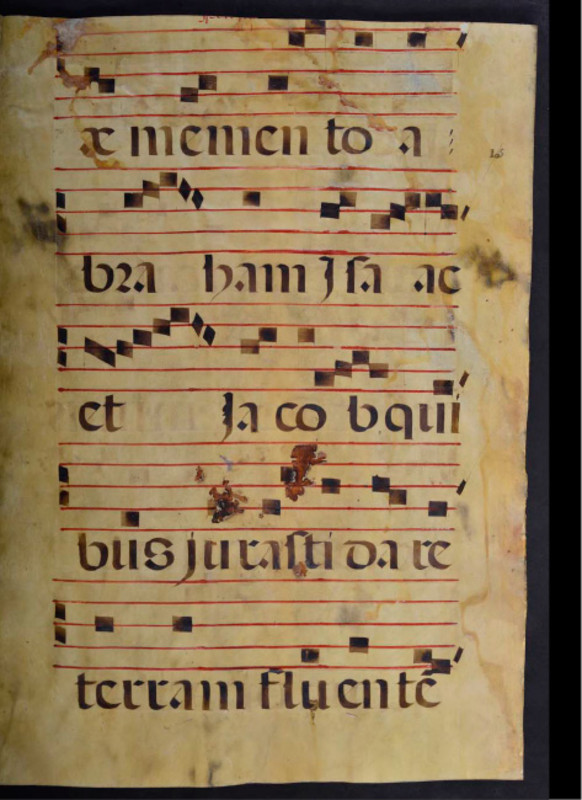 æ memen to a
bra ham Isa ac
et Ja co b qui
bus jurasti da re
terram flu entē